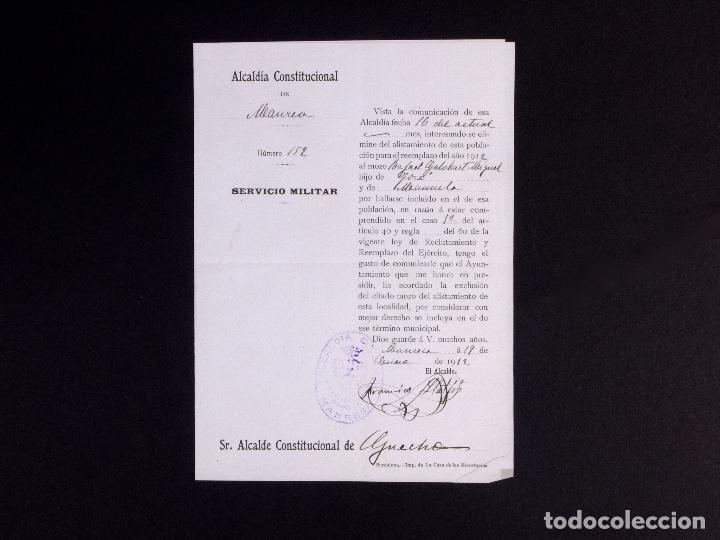 Alcaldía Constitucional
DE
Manresa
Número 182
SERVICIO MILITAR
Vista la comunicación de esa
Alcaldía fecha 16 del actual
mes, interesando se eli-
mine del alistamiento de esta pobla-
ción para el reemplazo del año 1912
al mozo Rafael Galobart Miquel
hijo de José
y de Manuela
por hallarse incluido en el de esa
población, en razón á estar com-
prendido en el caso 1º del ar-
tículo 40 y regla del 60 de la
vigente ley de Reclutamiento y
Reemplazo del Ejército, tengo el
gusto de comunicarle que el Ayun-
tamiento que me honro en pre-
sidir, ha acordado la exclusión
del citado mozo del alistamiento de
esta localidad, por considerar con
mejor derecho se incluya en el de
ese término municipal.
Dios guarde á V. muchos años.
Manresa á 19 de
Enero de 1912
El Alcalde,
ALCALDIA
MANRESA
Sr. Alcalde Constitucional de Guecho
Barcelona.—Imp. de La Casa de los Secretarios
todocoleccion